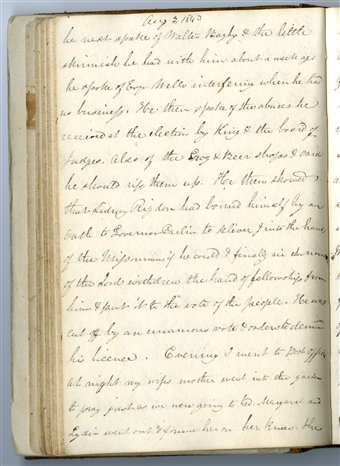 Aug 2 1843
he next spoke of Walter Bagby & the little
skirmish he had with him about a week ago
he spoke of Esqr Wells interfering when he had
no business. He then spoke of the abuses he
received at the election by King & the board of
Judges. Also of the Grog & Beer shops & said
he should rip them up. He then showed
that Sidney Rigdon had bound himself by an
oath to Governor Carlin to deliver J into the hands
of the Missourians if he could & finally in the name
of the Lord withdrew the hand of fellowship from
him & put it to the vote of the people. He was
cut off by an unanimous vote & orders to demand
his licence. Evening I went to Post office
At night my wifes mother went into the garden
to pray just as we were going to bed. Margaret and
Lydia went out & found her on her knees. She